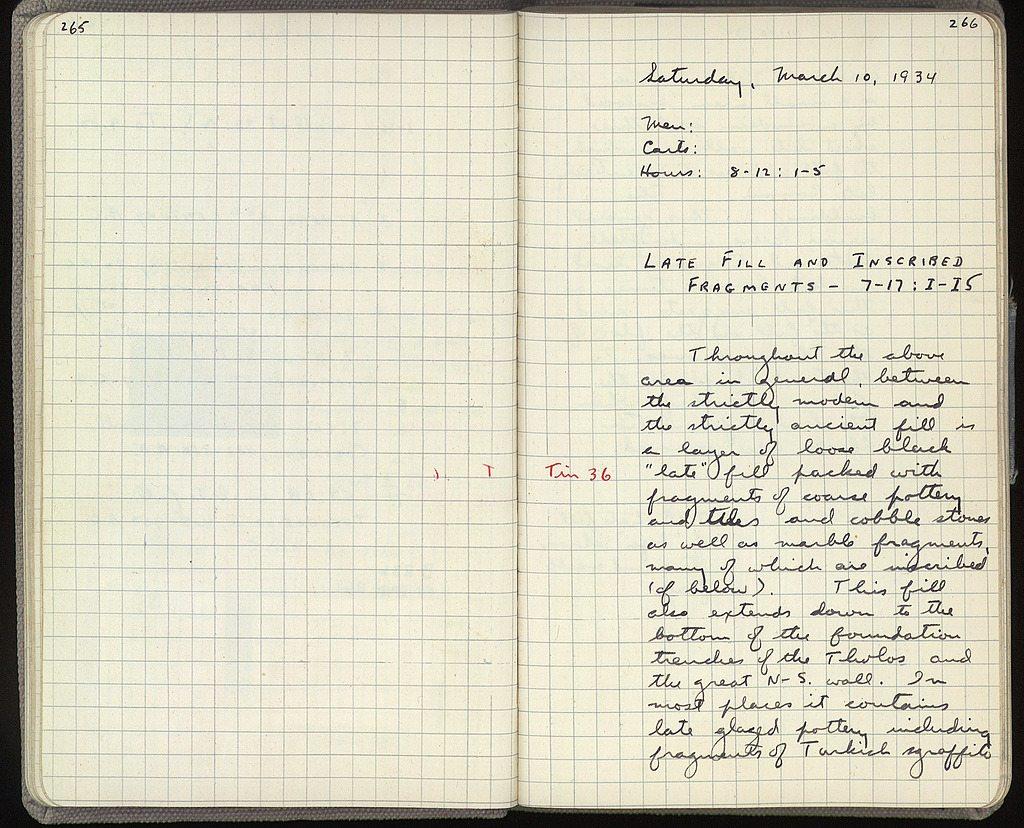 265
266
Saturday, March 10, 1934
Men:
Carts:
Hours: 8-12: 1-5
LATE FILL AND INSCRIBED
FRAGMENTS - 7-17: I-IS
Throughout the above
area in general, between
the strictly modern and
the strictly ancient fill is
a layer of loose black
"late" fill packed with
T Tin 36
fragments of coarse pottery
and tiles and cobble stones
as well as marble fragments,
many of which are inscribed
(cf below). This fill
also extends down to the
bottom of the foundation
trenches of the Tholos and
the great N-S. wall. In
most places it contains
late glazed pottery including
fragments of Turkish sgraffito